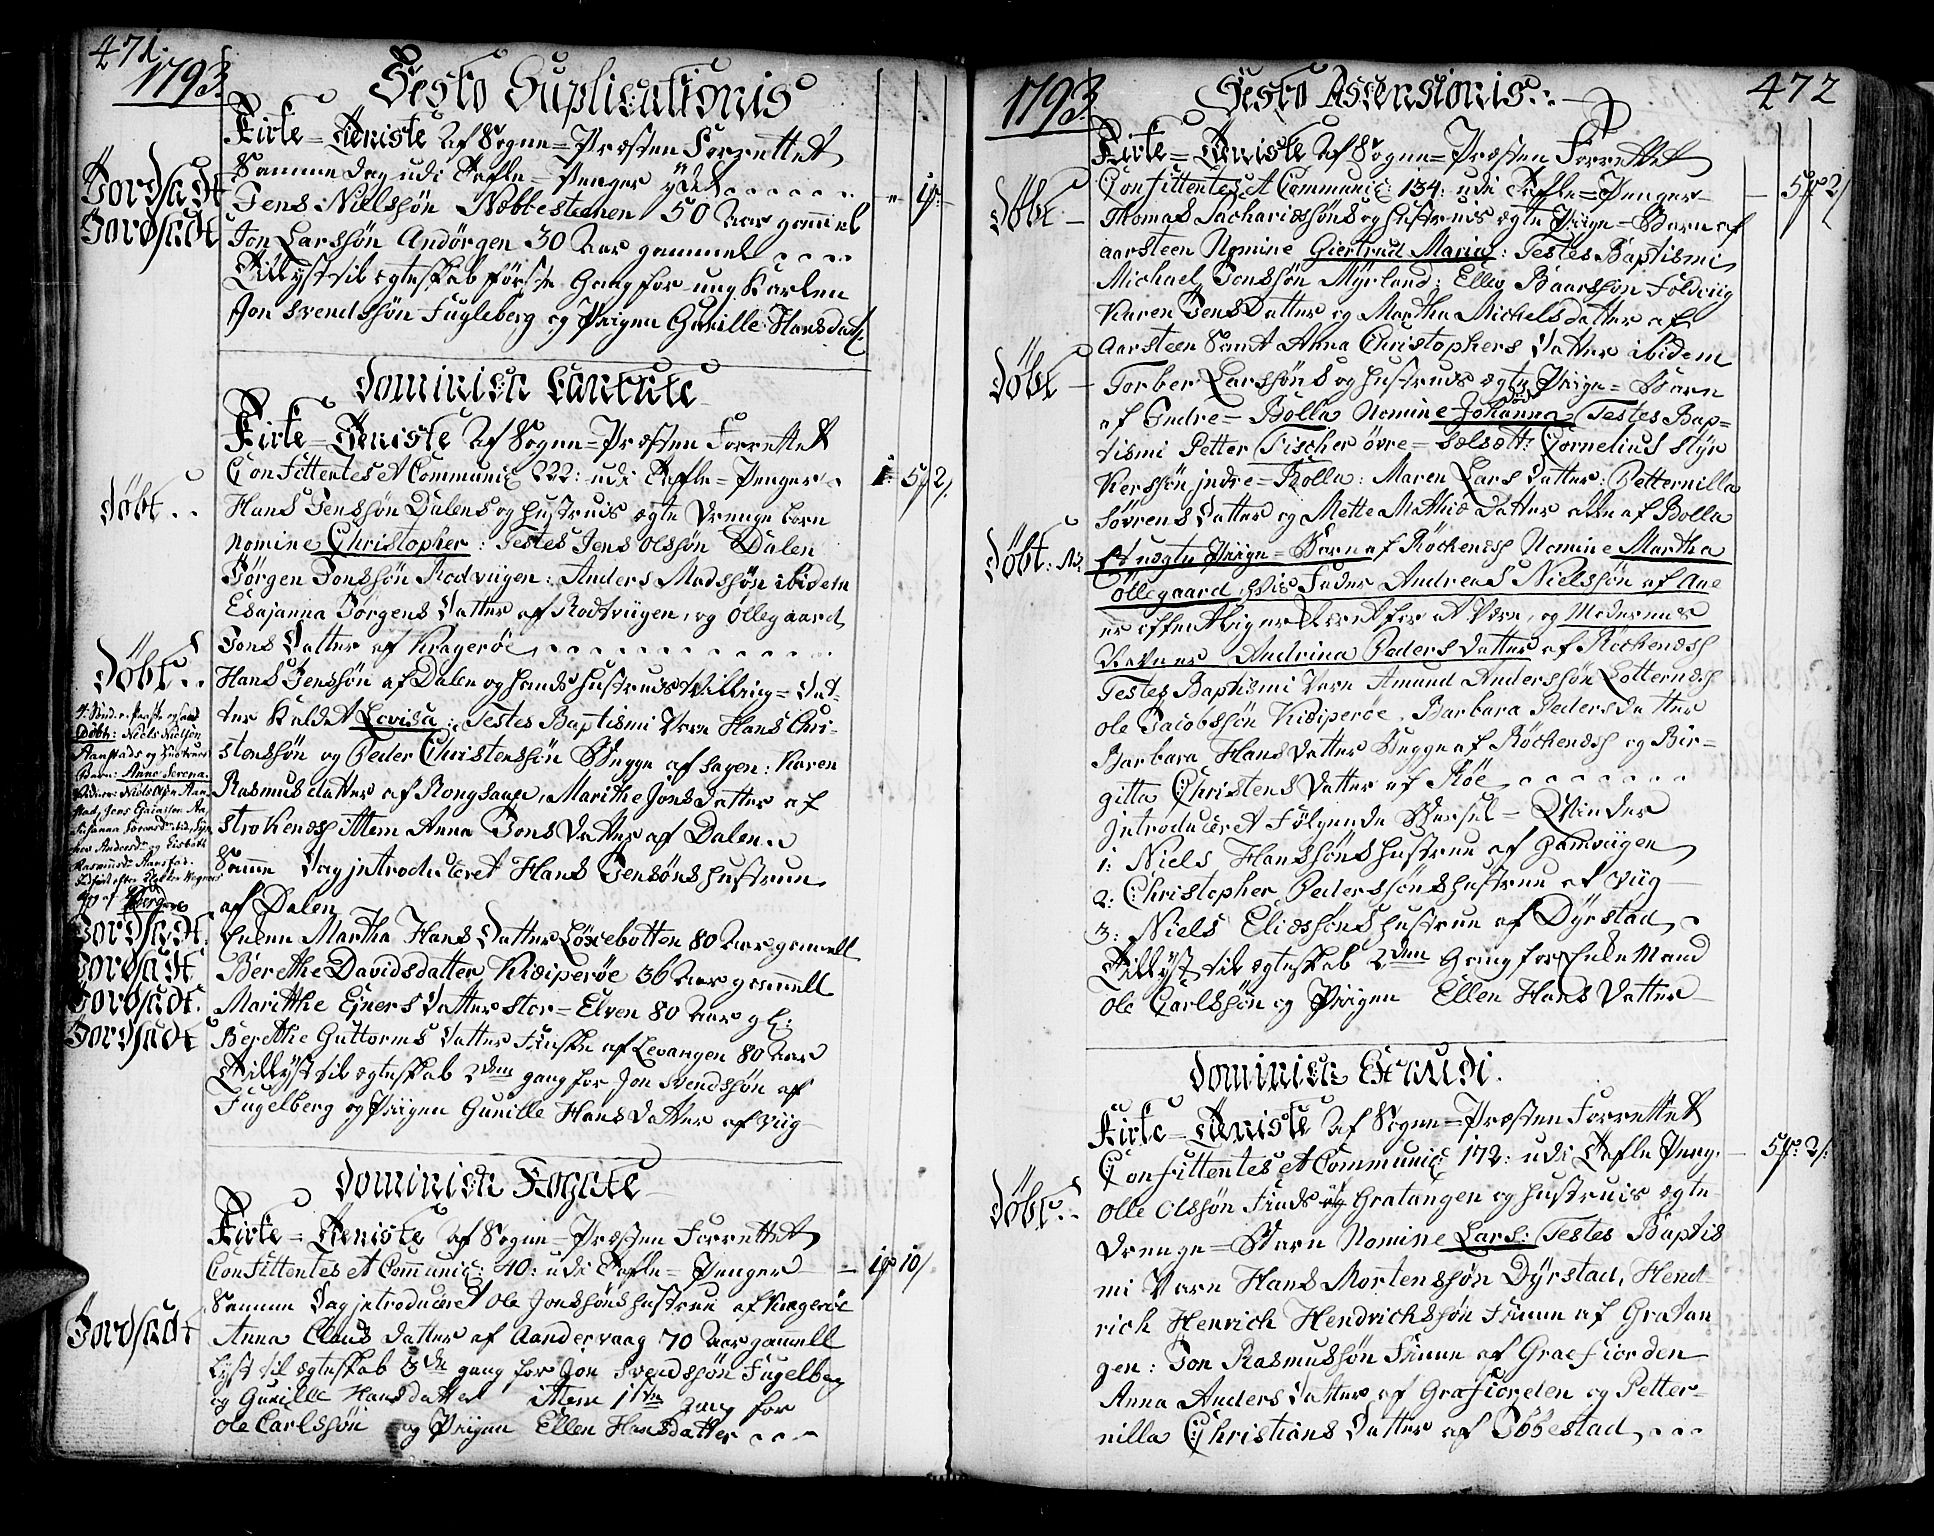 471.
1793.
Festo Suplicationis
Kirke=Tieniste af Sogne=Præsten Forrettet
Samme dag udi Tafle=Penger ydet . . . . . . 1 :
Jordsadt Jens Nielssøn Nobbesteenen 50 Aar gamel
Jordsadt Jon Larssøn Andørgen 30 Aar gammel . . . .
Tillyst til ægteskab første Gang for ung Karlen
Jon Svendssøn Fugleberg og Piigen Gunille Hansdatt:
Dominica Cantate
Kirke=Tieniste af Sogne=Præsten Forrettet
Confittentes et Communic: 222: udi Tafle=Penger . 1: 5 2/.
døbt . . Hans Jenssøn Dalens og hustrues ægte Drenge barn
Nomine Christopher : Testes Jens Olssøn Dalen
Jørgen Jonssøn Rodviigen: Anders Madssøn ibidem
Esajanna Jørgens Datter af Rodtviigen, og Ollegaard
Jons Datter af Kragerøe . . . . . . . . . . .
døbt . . Hans Jenssøn af Dalen og hands hustrues Tvilling=Dat-
ter kaldet Lovisa : Testes Baptismi Vare Hans Chri-
stenssøn og Peder Christenssøn Begge af Sagen : Karen
Rasmusdatter af Rongsaae, Marithe Jons Datter af
Strokenæs ittem Anna Jons Datter af Dalen . .
døbt: Niels Nielsøn
Aanstads og Hustrues
Barn: Anne Serena.
Samme Dag introduceret Hans Jensøns hustrue
af Dalen
Jordsadt. Enken Martha Hans Datter Loxebotten 80 Aar gamell
Jordsadt Berethe Davidsdatter Kiøiperøe 36 Aar gamell
Jordsadt. Marithe Ejners Datter Stor=Elven 80 Aar gl:
Jordsadt Berethe Guttorms Datter Finske af Levangen 80 Aar
Tillyst til ægteskab 2den gang for Jon Svendssøn af
Fugelberg og Piigen Gunille Hans Datter af Viig
Dominica Rogate
Kirke=Tieniste af Sogne=Præsten Forrettet
Confittentes et Communic: 40: udi Tafle=Penger — 1 10/
Samme Dag introduceret Ole Jonssøns hustrue af Kragerøe
Jordsadt Anna Claus Datter af Aandervaag 70 Aar gamell
Lyst til ægteskab 3die gang for Jon Svendssøn Fugelberg
og Gunille Hansdatter ittem 1ste gang for
Ole Carlssøn og Piigen Ellen Hansdatter . . .
472
1793.
Festo Ascensionis
Kirke=Tieniste af Sogne=Præsten Forrettet
Confittentes et Communic: 134: udi Tafle=Penger — 5 2/
døbt — Thomas Zachariæssøns og hustrues ægte Piige=Barn af
Aarsteen Nomine Giertrud Maria: Testes Baptismi
Michael Jonssøn Myrland: Ellev Baarssøn Foldviig
Karen Jens Datter og Martha Michelsdatter af
Aarsteen Samt Anna Christophers Datter ibidem
døbt — Torber Larssøns og hustrues ægte Piige=Barn
af Indre=Rolla Nomine Johanna Testes Bap=
tismi Petter Fischer øvre= Cornelius Styr
Kerssøn indre=Rolla: Maren Lars Datter: Petternilla
Sørens Datter og Mette Mathiæ Datter alle af Rolla
døbt: NB Et uægte Piige=Barn af Røckenæs Nomine Martha
Ollegaard, hvis Fader Andreas Nielssøn af Aae
er offentliger for at Være, og Moderens
Navner Andrina Peders Datter af Røckenæs
Testes Baptismi Vare Amund Anderssøn Lotternæs
Ole Jacobssøn Kiøiperøe, Barbara Pedersdatter
Barbara Hans Datter Begge af Røckenæs og Bir=
gitta Christens Datter af Røe . . . . . . .
introduceret Følgende Barsel=Qvinder
1: Niels Hanssøns hustrue af Gamviigen
2: Christopher Pederssøns hustrue af Viig
3: Niels Eliæssøns hustrue af Dyrstad
Tillyst til ægteskab 2den Gang for Enke Mand
Ole Carlssøn og Piigen Ellen Hans Datter
Dominica Exaudi.
Kirke=Tieniste af Sogne=Præsten Forrettet
Confittentes et Communic: 172: udi Tafle Peng. — 5 2/:
døbt . . Olle Olssøn Finds Gratangen og hustrues ægte
Drenge=Barn Nomine Lars: Testes Baptis
mi Vare Hans Mortenssøn Dyrstad, Hend-
rich Henrich Hendrickssøn Finne af Gratan
gen: Jon Rasmussøn Finne af Graefiorden
Anna Anders Datter af Grafiorden og Petter-
nilla Christians Datter af Ibbestad . . .